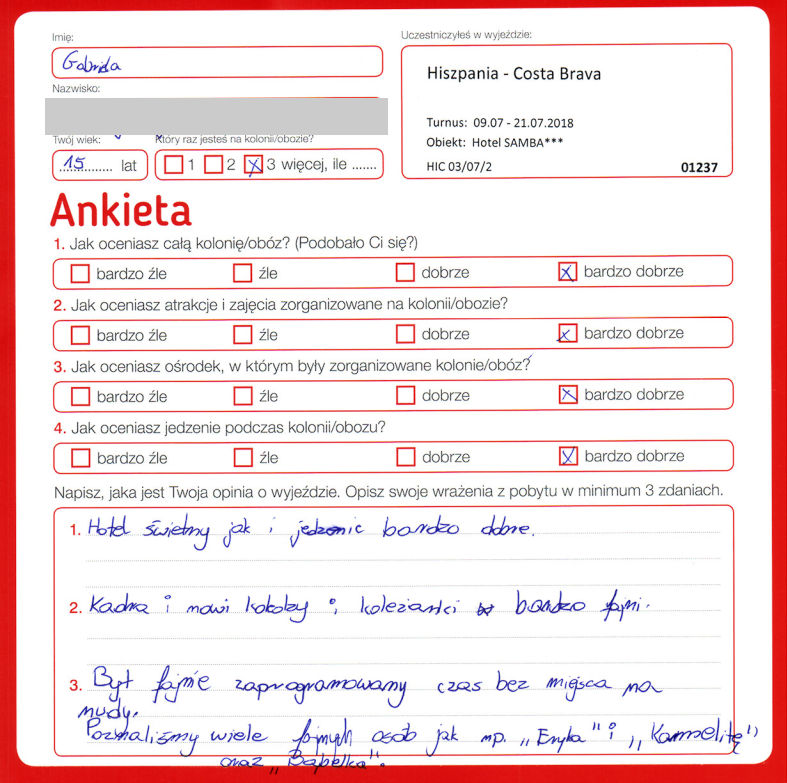 Imię:
Gabriela
Nazwisko:
Twój wiek:
Który raz jesteś na kolonii/obozie?
15 lat
1 2 3 więcej, ile .......
Uczestniczyłeś w wyjeździe:
Hiszpania - Costa Brava
Turnus: 09.07 - 21.07.2018
Obiekt: Hotel SAMBA***
HIC 03/07/2 01237
Ankieta
1. Jak oceniasz całą kolonię/obóz? (Podobało Ci się?)
bardzo źle źle dobrze bardzo dobrze
2. Jak oceniasz atrakcje i zajęcia zorganizowane na kolonii/obozie?
bardzo źle źle dobrze bardzo dobrze
3. Jak oceniasz ośrodek, w którym były zorganizowane kolonie/obóz?
bardzo źle źle dobrze bardzo dobrze
4. Jak oceniasz jedzenie podczas kolonii/obozu?
bardzo źle źle dobrze bardzo dobrze
Napisz, jaka jest Twoja opinia o wyjeździe. Opisz swoje wrażenia z pobytu w minimum 3 zdaniach.
1. Hotel świetny jak i jedzenie bardzo dobre.
2. Kadra i nowi koledzy i koleżanki bardzo fajni.
3. Był fajnie zaprogramowany czas bez miejsca na
nudy.
Poznaliśmy wiele fajnych osób jak np. ,,Eryka" i ,,Karmelitę"
oraz ,,Bąbelka".